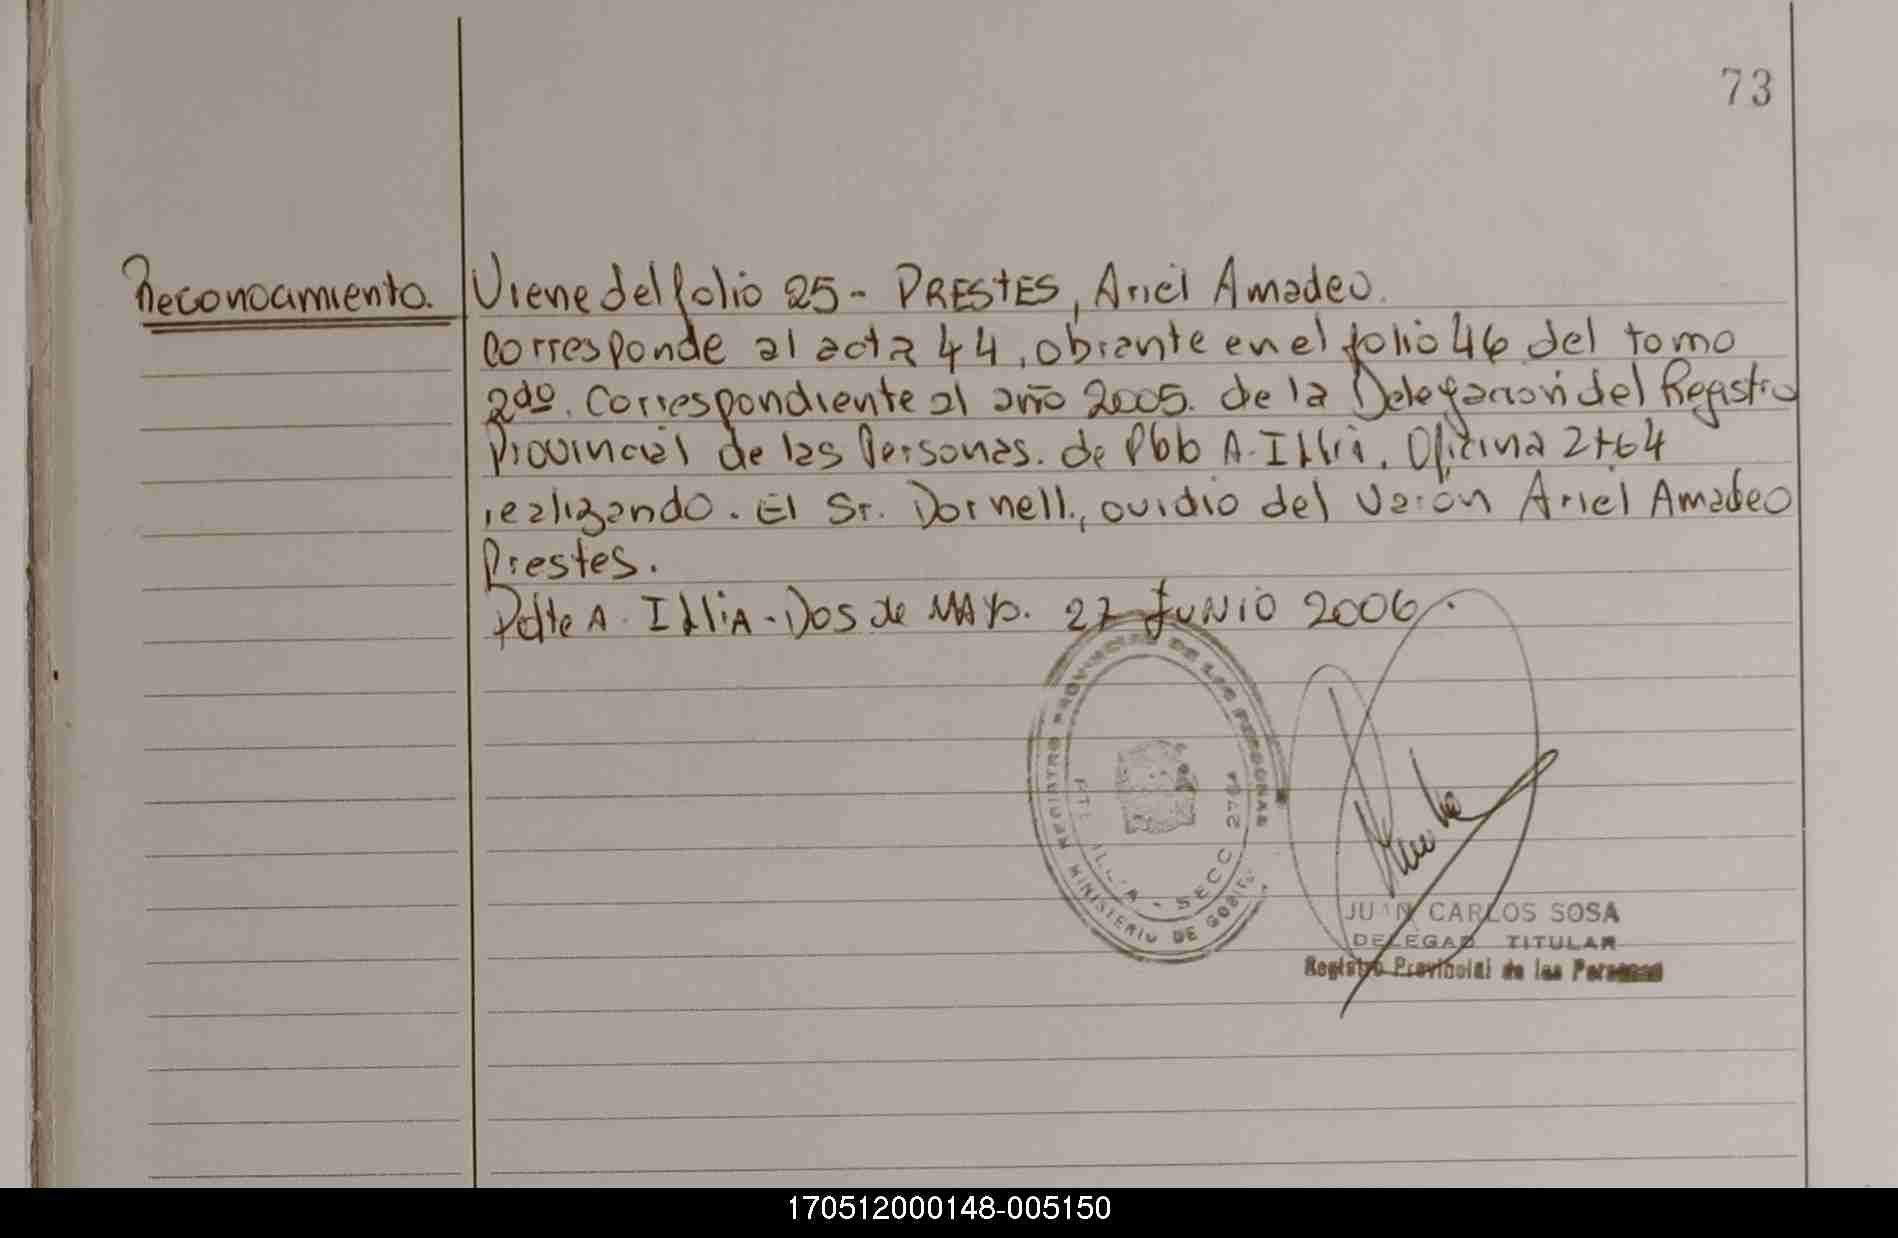 73
Reconocimiento. Viene del folio 25 - PRESTES, Ariel Amadeo.
Corresponde al acta 44, obrante en el folio 46 del tomo
2do. Correspondiente al año 2005. de la Delegación del Registro
Provincial de las Personas. de Pbb A. Illia. Oficina 2764
realizando. El Sr. Dornell., ovidio del varón Ariel Amadeo
Prestes.
Pdte A. Illia - Dos de Mayo. 27 Junio 2006.
REGISTRO PROVINCIAL DE LAS PERSONAS
ILLIA - SECC 276
MINISTERIO DE
JUAN CARLOS SOSA
DELEGAD TITULAR
Registro Provincial de las Personas
170512000148-005150